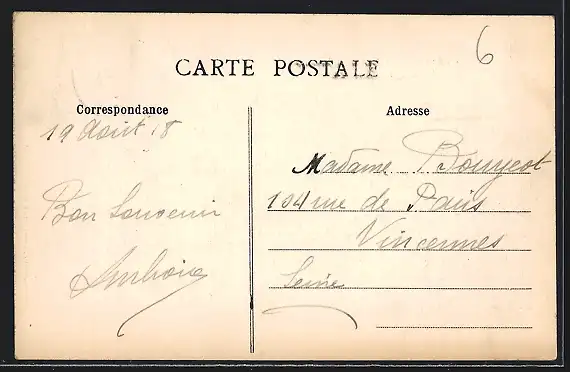 6
CARTE POSTALE
Correspondance
Adresse
19 Août 18
Bon Souvenir
Madame
104 rue de Paris
Vincennes
Seine